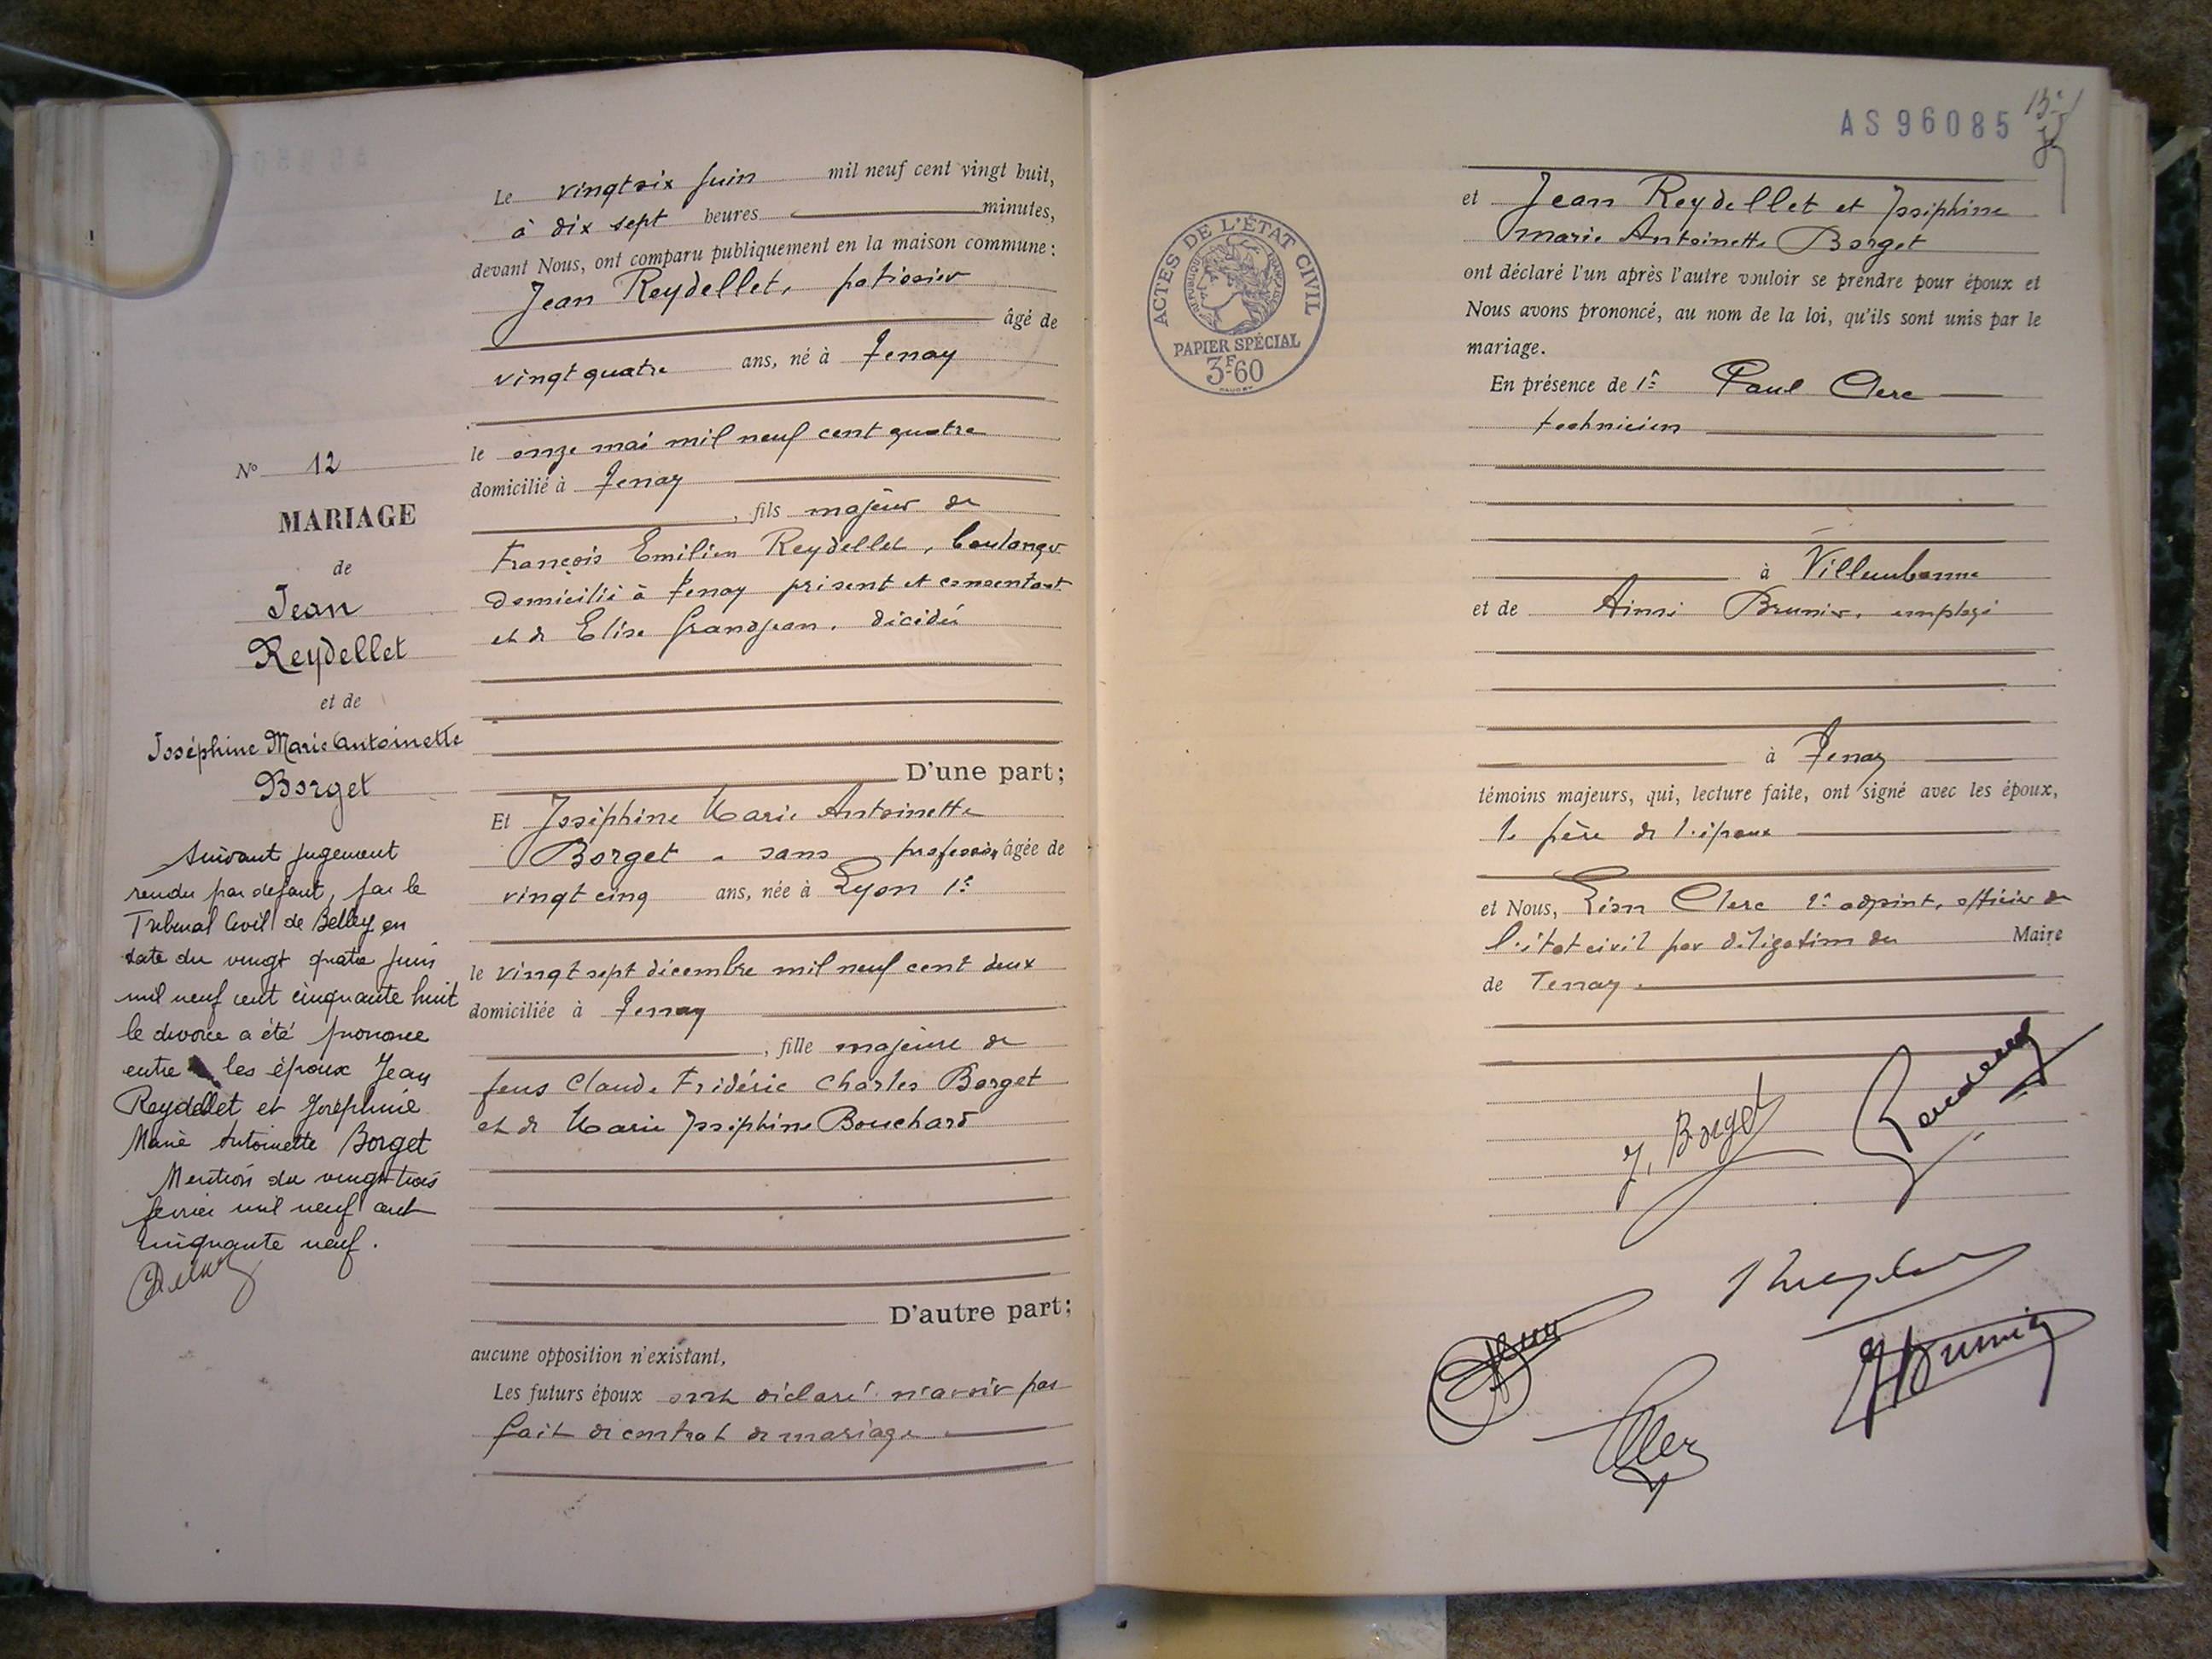 N° 12
MARIAGE
de
Jean
Reydellet
et de
Joséphine Marie Antoinette
Borget
Suivant jugement
rendu par defaut, par le
Tribunal Civil de Belley en
date du vingt quatre juin
mil neuf cent cinquante huit
le divorce a été prononcé
entre les époux Jean
Reydellet et Joséphine
Marie Antoinette Borget
Mention du vingt trois
février mil neuf cent
cinquante neuf.
Le vingt six Juin mil neuf cent vingt huit,
à dix sept heures minutes,
devant Nous, ont comparu publiquement en la maison commune :
Jean Reydellet, patissier
âgé de
vingt quatre ans, né à Tenay
le onze mai mil neuf cent quatre
domicilié à Tenay
, fils majeur de
François Emilien Reydellet, boulanger
domicilié à Tenay présent et consentant
et de Elise Grandjean, décédée
D'une part ;
Et Joséphine Marie Antoinette
Borget - sans profession, âgée de
vingt cinq ans, née à Lyon 1e
le vingt sept décembre mil neuf cent deux
domiciliée à Tenay
, fille majeure de
feus Claude Frédéric Charles Borget
et de Marie Joséphine Bouchard
D'autre part ;
aucune opposition n'existant,
Les futurs époux ont déclaré n'avoir pas
fait de contrat de mariage
AS 96085
ACTES DE L'ÉTAT CIVIL
RÉPUBLIQUE FRANÇAISE
PAPIER SPÉCIAL
3F60
et Jean Reydellet et Joséphine
Marie Antoinette Borget
ont déclaré l'un après l'autre vouloir se prendre pour époux et
Nous avons prononcé, au nom de la loi, qu'ils sont unis par le
mariage.
En présence de 1° Paul Clerc
technicien
à Villeurbanne
et de Aimé Brunier, employé
à Tenay
témoins majeurs, qui, lecture faite, ont signé avec les époux,
le père de l'époux
et Nous, Léon Clerc 2e adjoint, officier de
l'état civil par délégation du Maire
de Tenay.
J. Borget